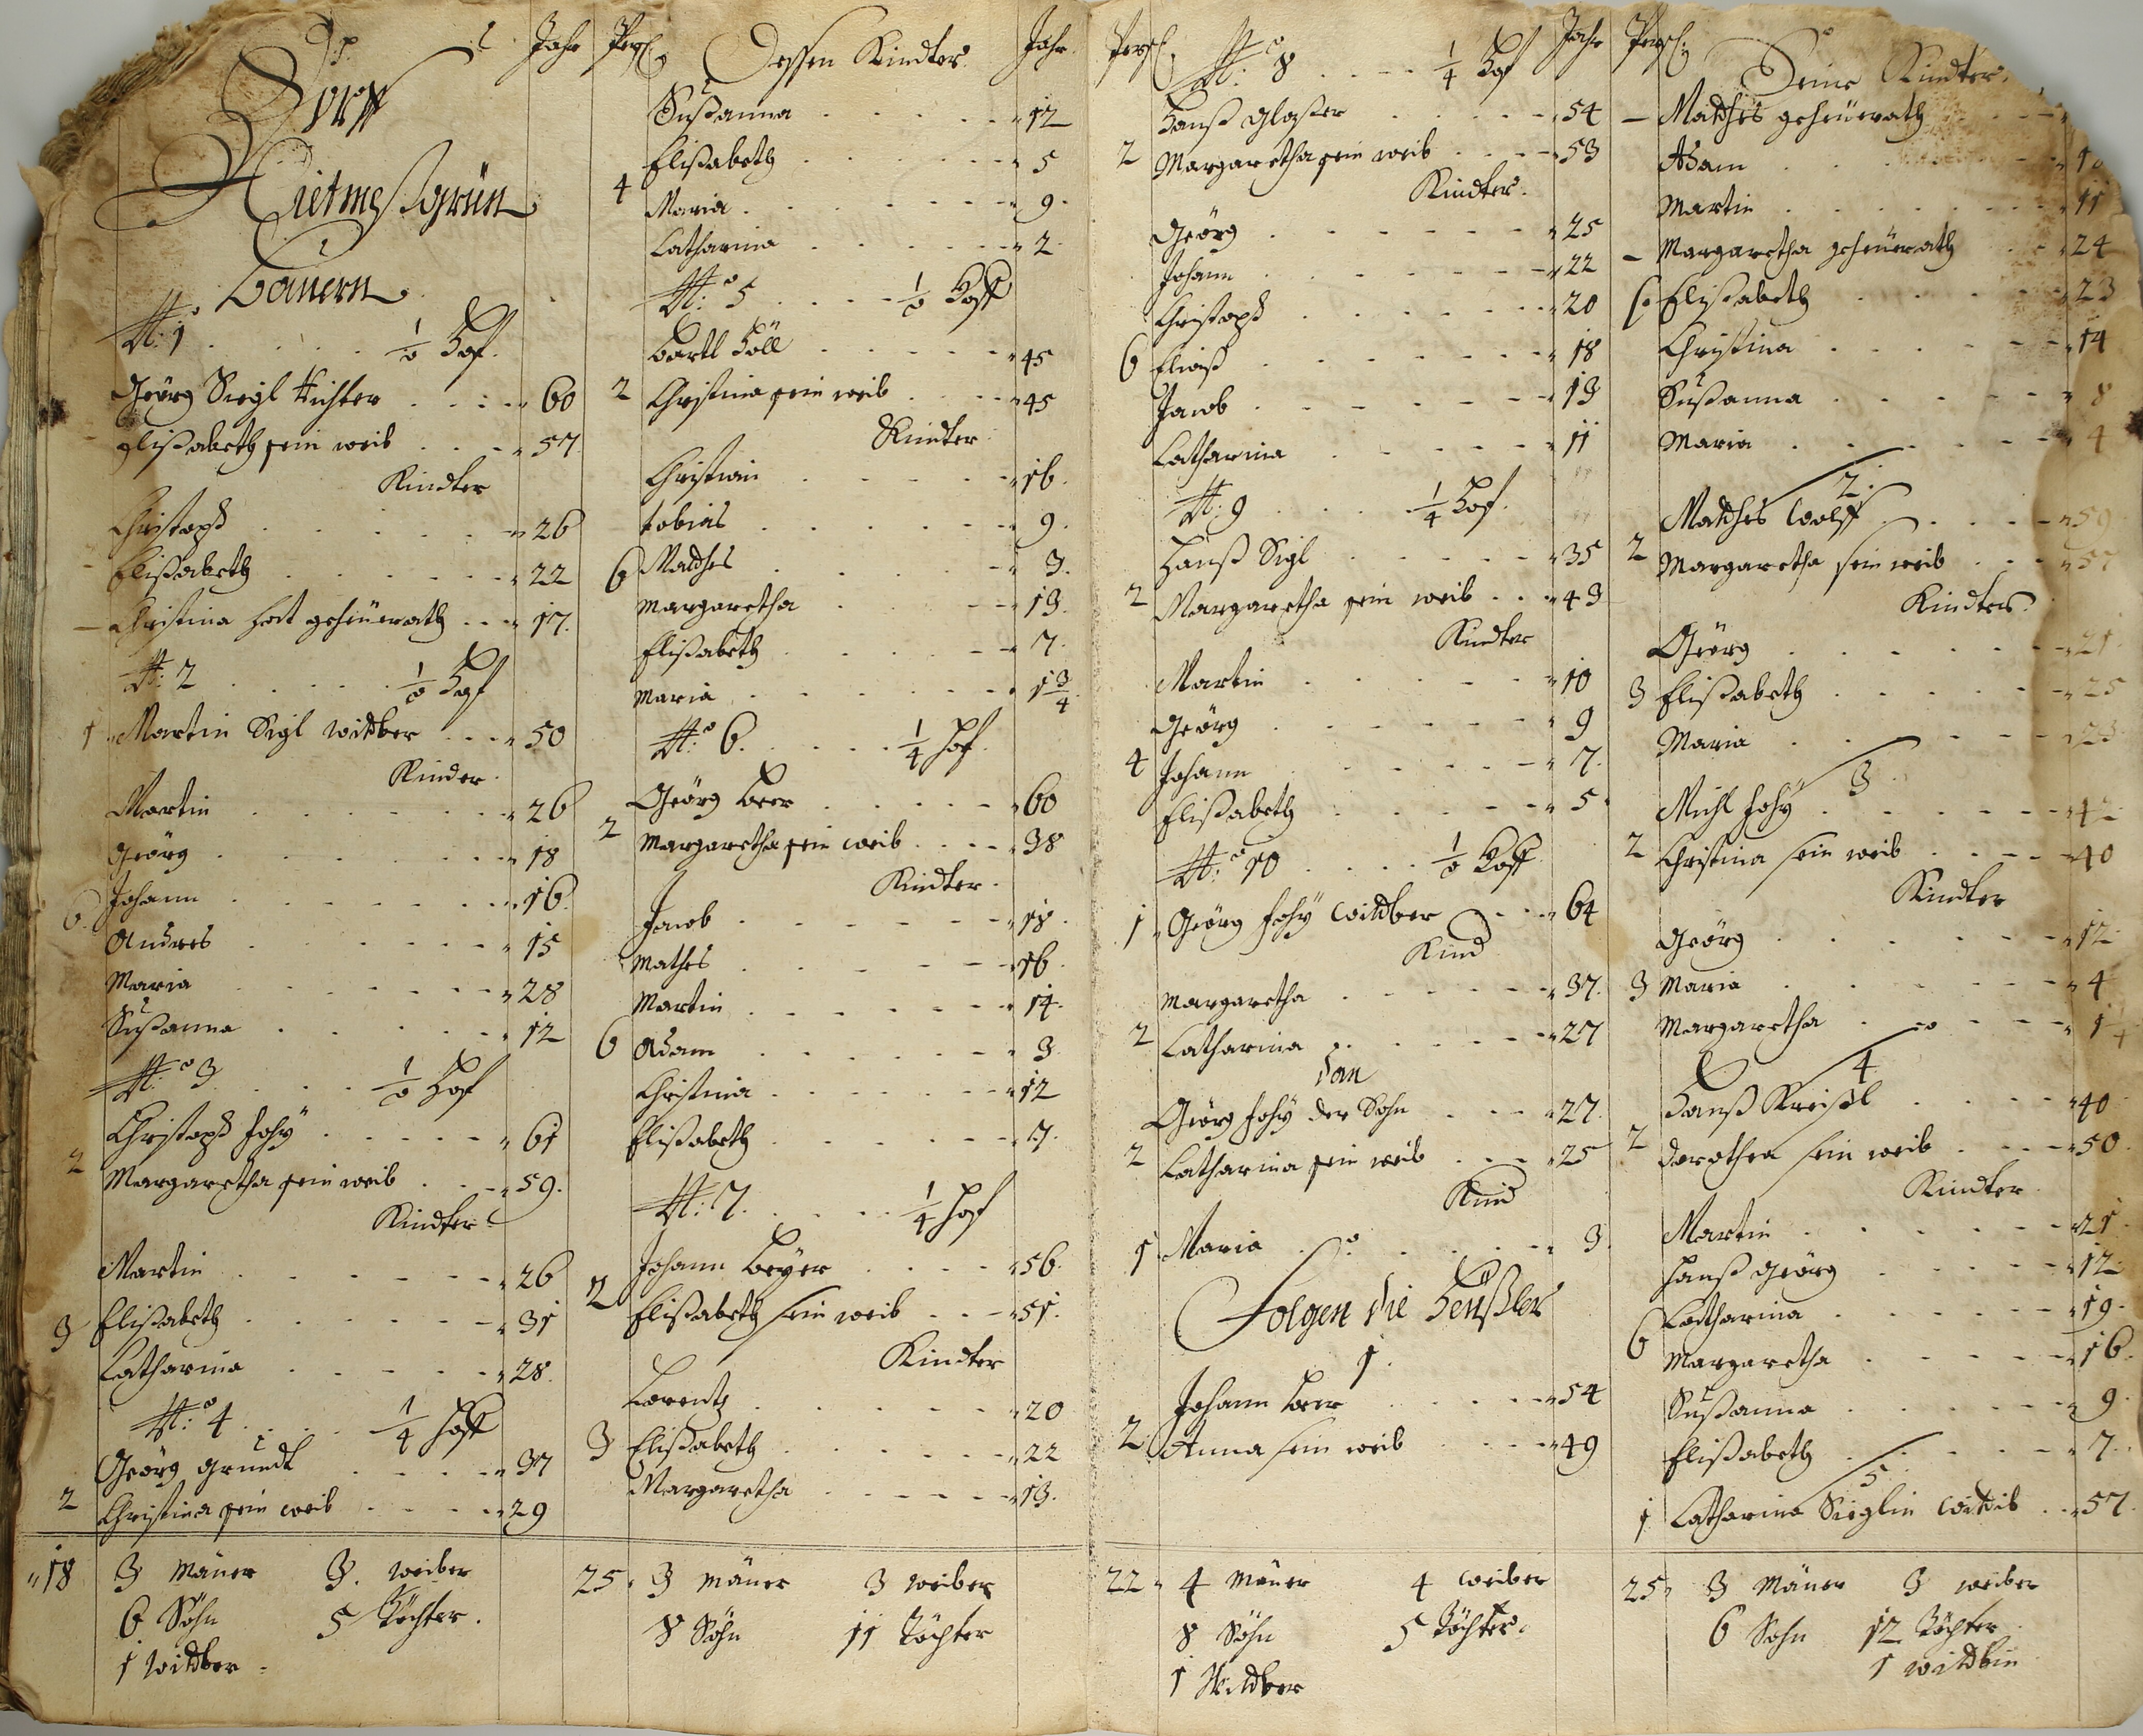 Dorff
Rietmeßgrün
Bauern
Jahr Pers:
N: 1 . . . . 1/8 Hof.
Geörg Siegl Richter . . . 60
Elisabeth sein weib . . . 57.
Kindter
Christoph . . . 26
Elisabeth . . . 22
— Christina hat geheürath . . . 17.
N: 2 . . . . 1/8 Hof
1 Martin Sigl wittber . . . 50
Kinder
Martin . . . 26
Geörg . . . 18
6. Johann . . . 16.
Andres . . . 15
Maria . . . 28
Sußanna . . . 12
No: 3 . . . 1/8 Hof
Christoph Fohÿ . . . 61
2 Margaretha sein weib . . . 59.
Kindter
Martin . . . 26
3 Elisabeth . . . 31
Catharina . . . 28.
No: 4 . . . 1/4 Hoff
Geörg Grundt . . . 37
2 Christina sein weib . . . 29
18 3 Mäner 3. weiber
6 Söhn 5 Töchter.
1 wittber.
Dessen Kindter Jahr
Sußanna . . . 12
Elisabeth . . . 5
4 Maria . . . 9.
Catharina . . . 2.
No: 5 . . . 1/8 Hoff
Bartl Höll . . . 45
2 Christina sein weib . . . 45
Kindter
Christian . . . 16.
tobias . . . 9.
6 Mathes . . . 3.
Margaretha . . . 13.
Elisabeth . . . 7.
Maria . . . 1 3/4
No: 6. . . . 1/4 Hof.
Geörg Beer . . . 60
2 Margaretha sein weib . . . 38
Kindter.
Jacob . . . 18.
Mathes . . . 16.
Martin . . . 14.
6 Adam . . . 3.
Christina . . . 12
Elisabeth . . . 7.
N: 7. . . . 1/4 Hof
Johann Beyer . . . 56.
2 Elisabeth sein weib . . . 51.
Kindter
Lorentz . . . 20
3 Elisabeth . . . 22
Margaretha . . . 13.
25. 3 Mäner 3 weiber
8 Söhn 11 Töchter
Pers: No: 8 . . . 1/4 Hof Jahr
Hanß Glaßer . . . 54
2 Margaretha sein weib . . . 53
Kindter.
Geörg . . . 25
Johann . . . 22
Christoph . . . 20
6 Eliaß . . . 18
Jacob . . . 13
Catharina . . . 11
N: 9 . . . 1/4 Hof.
Hanß Sigl . . . 35
2 Margaretha sein weib . . . 43
Kindter
Martin . . . 10
Geörg . . . 9
4 Johann . . . 7.
Elisabeth . . . 5.
No: 10 . . . 1/8 Hoff
1 Geörg Fohÿ wittber . . . 64
Kind
Margaretha . . . 37.
2 Catharina . . . 27
dan
Geörg Fohÿ der Sohn . . . 27.
2 Catharina sein weib . . . 25
Kind
1 Maria . . . 3.
Folgen die Heußler
1.
Johann Beer . . . 54
2 Anna sein weib . . . 49
22. 4 Mäner 4 weiber
8 Söhn 5 Töchter.
1 Wittber
Pers: Deine Kindter.
— Mathes geheürath
Adam
Martin . . . 11
— Margaretha geheürath . . . 24
6. Elisabeth . . . 23
Christina . . . 14
Sußanna . . . 8
Maria . . . 4
2.
Mathes Wolff . . . 59
2 Margaretha sein weib . . . 57
Kindter.
Geörg . . . 21
3 Elisabeth . . . 25
Maria . . . 23
3
Michl Fohÿ . . . 42
2 Christina sein weib . . . 40
Kindter
Geörg . . . 12
3 Maria . . . 4
Margaretha . . . 1
4
Hanß Kreißl . . . 40
2 Dorothea sein weib . . . 50.
Kindter
Martin . . . 21.
Hanß Geörg . . . 12
Catharina . . . 19.
6 Margaretha . . . 16.
Sußanna . . . 9.
Elisabeth . . . 7.
5
1 Catharina Sieglin wittib . . . 57.
25. 3 Mäner 3 weiber
6 Sohn 12 Töchter
1 wittbin